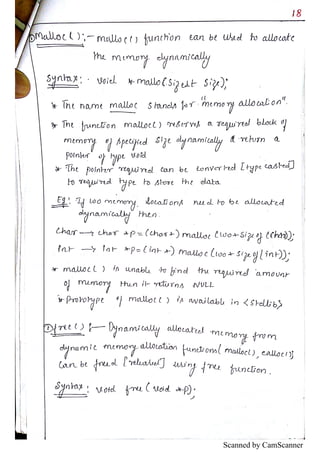 18
① Malloc( ) :- malloc( ) function can be used to allocate
the memory dynamically
Syntax : void * malloc(Sizett size);
* The name malloc stands for "memory allocation".
* The function malloc() reserves a required block of
memory of specified size dynamically & return a
pointer of type void
* The pointer required can be converted [type casted]
to required type to store the data
Eg : If 100 memory locations need to be allocated
dynamically then.
Char → char *p = (char *) malloc (100 * size of (char));
Int → int *p = (int *) malloc (100 * size of (int));
* malloc( ) is unable to find the required amount
of memory then it returns NULL
* Prototype of malloc() is available in <stdlib>
② free( ) :- Dynamically allocated memory from
dynamic memory allocation functions( malloc(), calloc())
Can be freed [released] using free function.
Syntax : void free (void *p);
Scanned by CamScanner